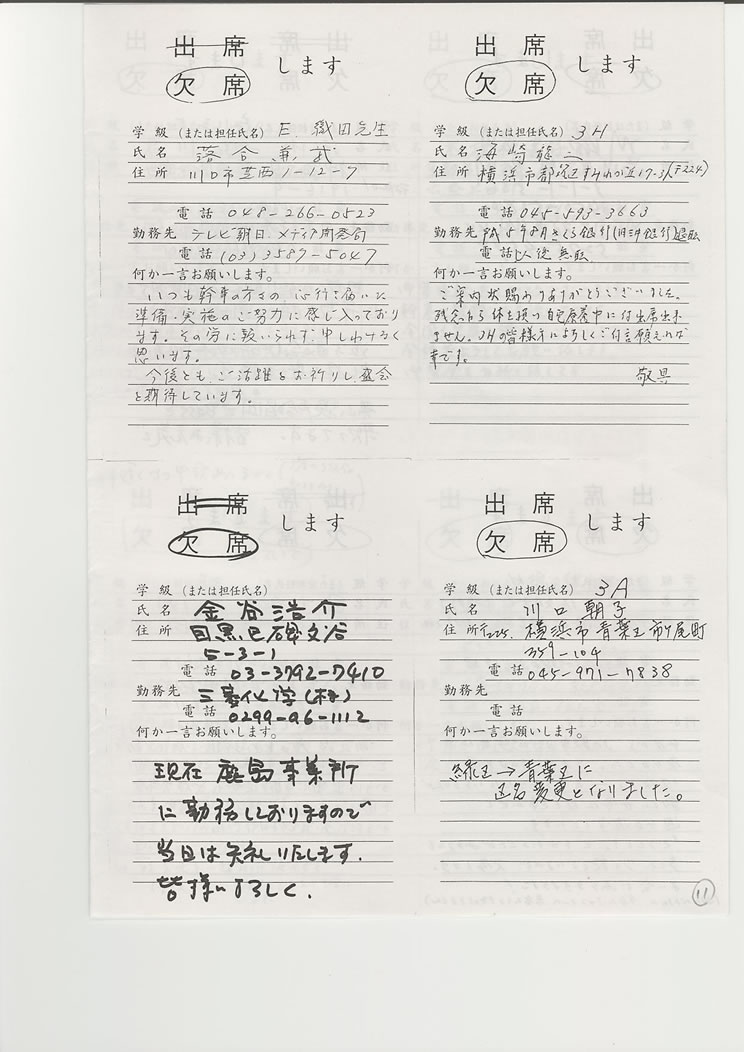 出席
欠席
します
学級（または担任氏名）E. 織田先生
氏名 落合兼武
住所 川口市芝西1-12-7
電話 048-266-0523
勤務先 テレビ朝日 メディア開発局
電話 (03) 3587-5047
何か一言お願いします。
いつも幹事の方々の心行き届いた
準備・実施のご努力に感じ入っており
ます。その労に報いられず申しわけなく
思います。
今後とも、ご活躍をお祈りし、盛会
を期待しています。
出席
欠席
します
学級（または担任氏名）3H
氏名 海崎
住所 横浜市都筑区すみれが丘17-3 (〒224)
電話 045-593-3663
勤務先 平成5年8月さくら銀行(旧三井銀行)退職
電話 以後無職
何か一言お願いします。
ご案内状賜わりありがとうございました。
残念ながら体を損い自宅療養中に付出席出来
ません。3Hの皆様方によろしくご付言願えれば
幸です。
敬具
出席
欠席
します
学級（または担任氏名）
氏名 金谷浩介
住所 目黒区碑文谷
5-3-1
電話 03-3792-7410
勤務先 三菱化学(株)
電話 0299-96-1112
何か一言お願いします。
現在 鹿島事業所
に勤務しておりますので
当日は失礼いたします.
皆様によろしく.
出席
欠席
します
学級（または担任氏名）3A
氏名 川口朝子
住所 〒225. 横浜市青葉区市ヶ尾町
359-104
電話 045-971-7838
勤務先
電話
何か一言お願いします。
緑区→青葉区に
区名変更となりました。
11